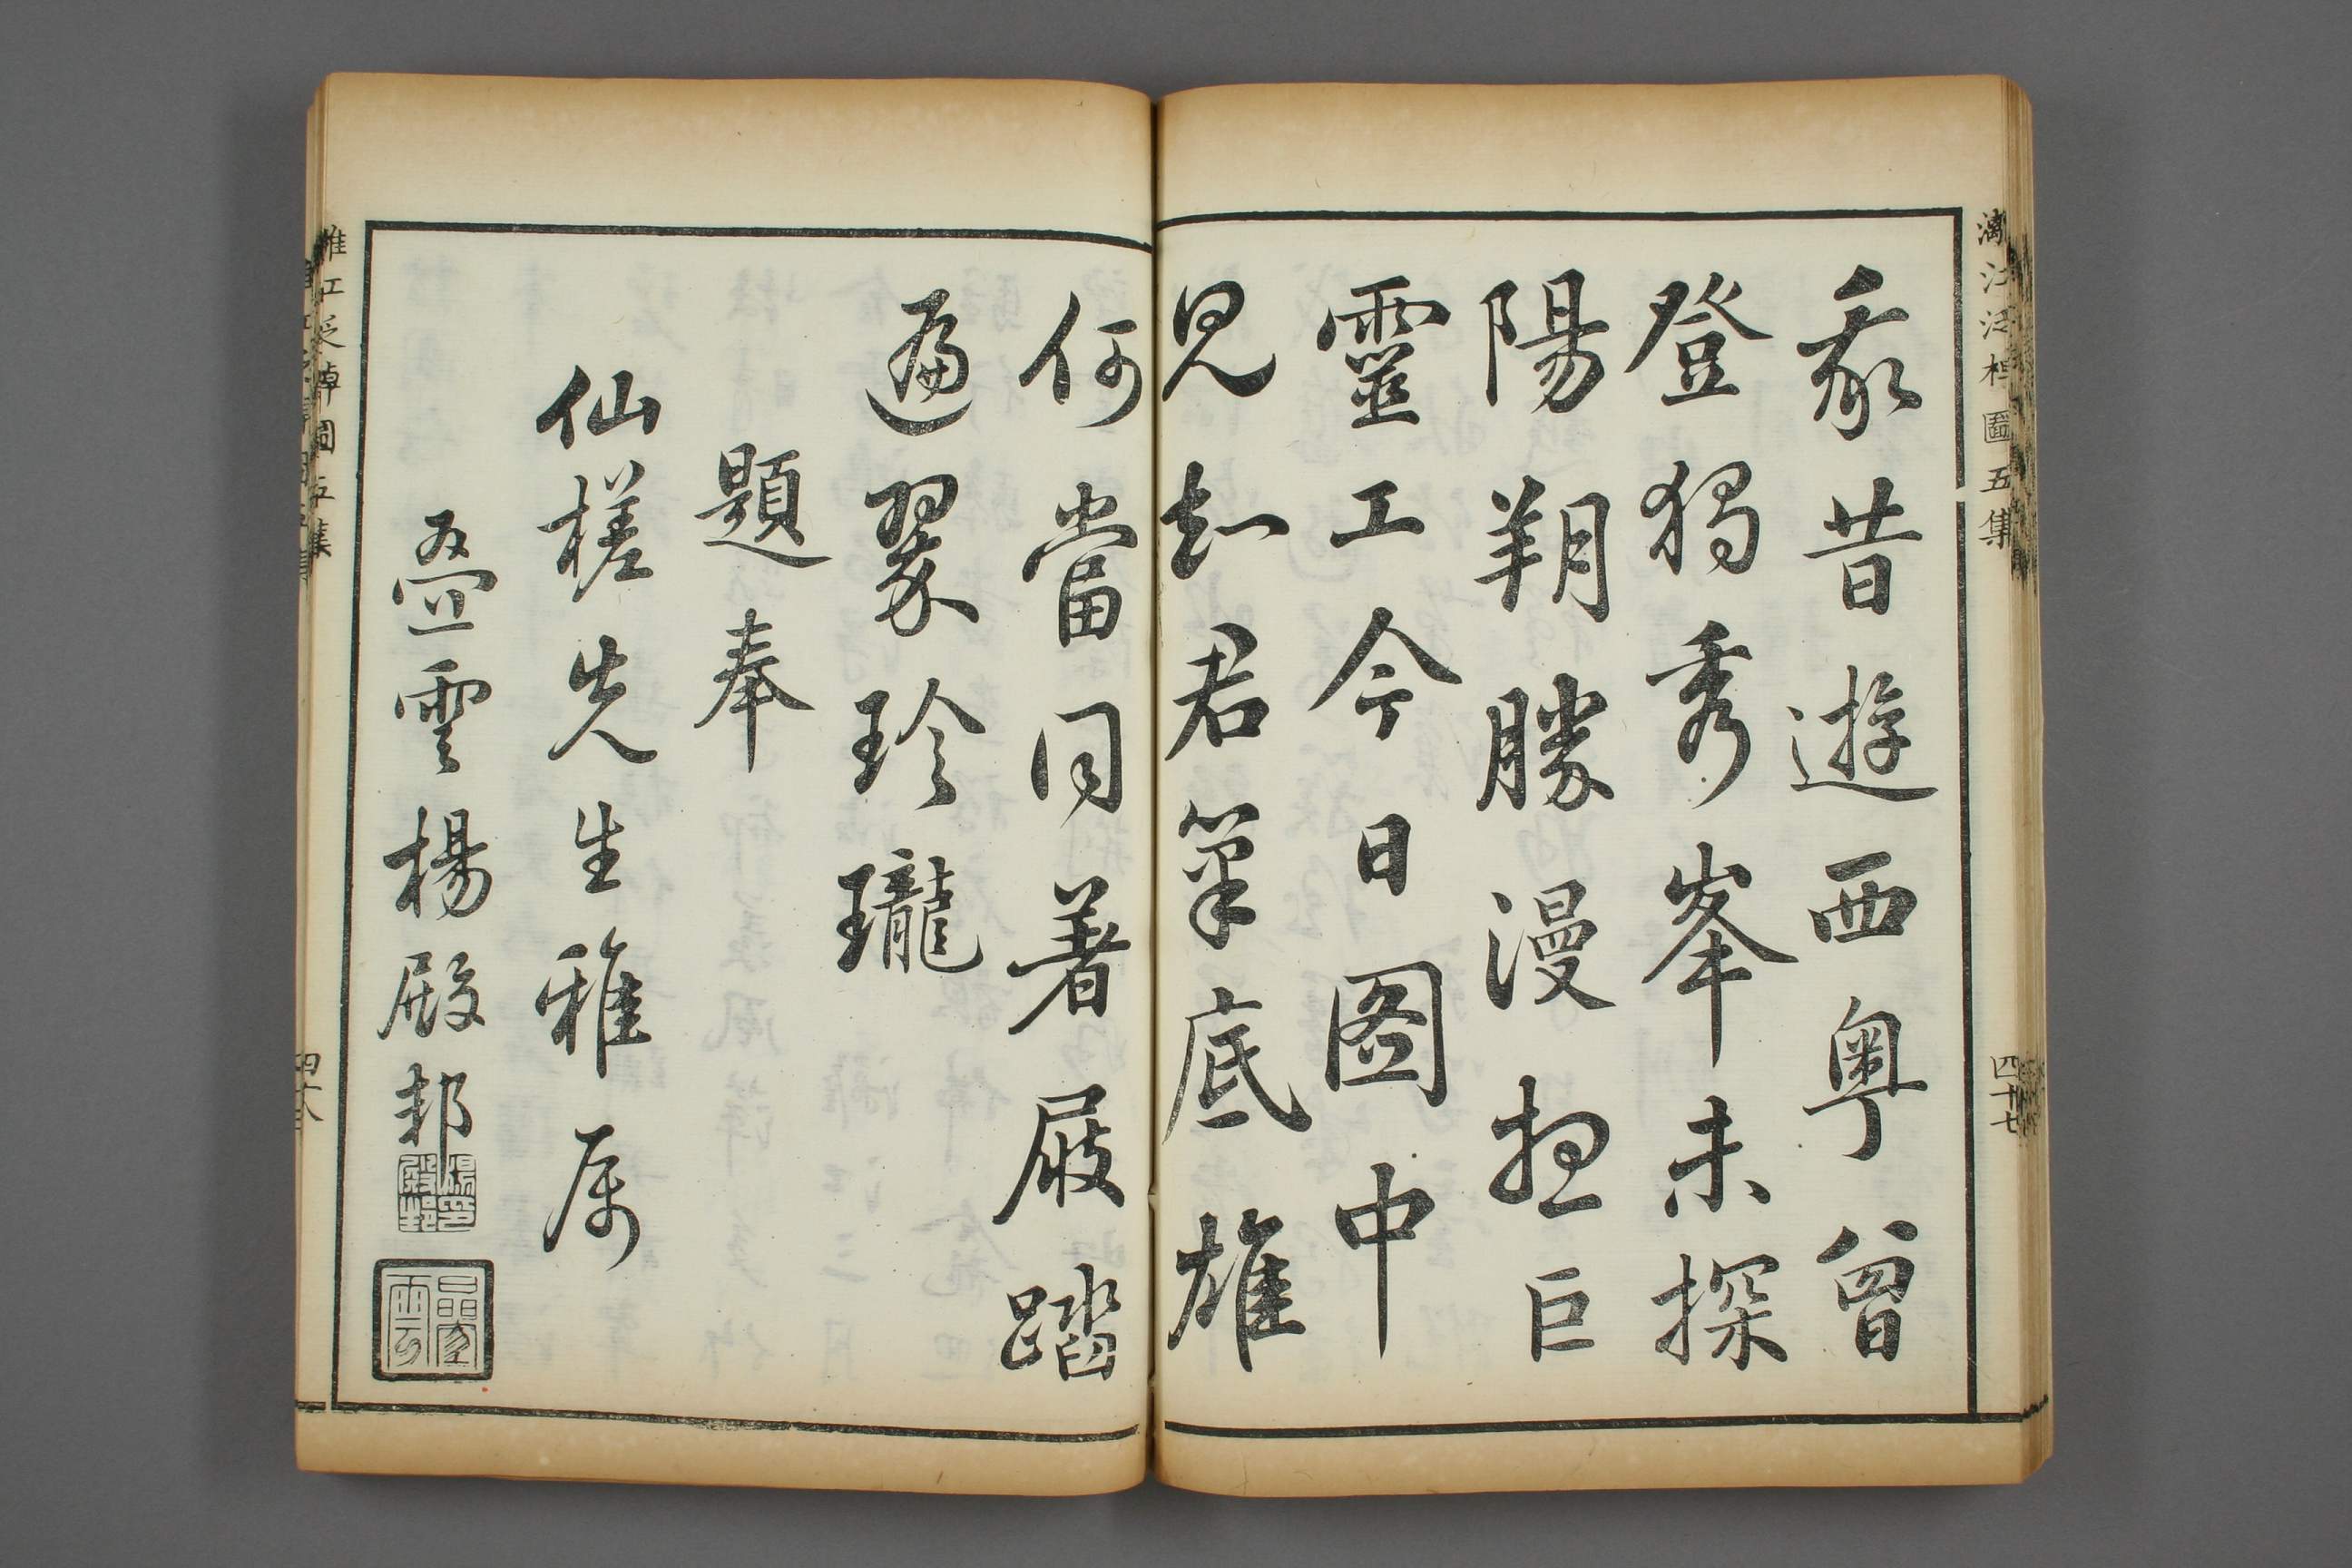 灕江泛棹圖五集
四十七
我昔遊西粵曾
登獨秀峯未探
陽朔勝漫擅巨
靈工今日图中
見知君筆底雄
何當同著屐踏
遍翠玲瓏
題奉
仙槎先生雅属
叠雲楊殿邦
楊印殿邦
疊雲
四十八